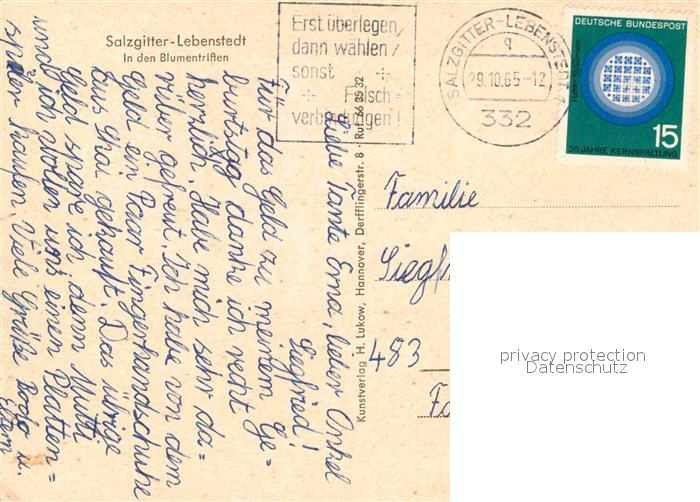 Salzgitter-Lebenstedt
In den Blumentriften
Erst überlegen,
dann wählen,
sonst
Falsch=
verbindungen!
SALZGITTER-LEBENSTEDT 1
q
29.10.65-12
332
DEUTSCHE BUNDESPOST
Hahn/Straßmann
15
25 JAHRE KERNSPALTUNG
Liebe Tante Erna, lieber Onkel
Siegfried!
Für das Geld zu meinem Ge=
burtstag danke ich recht
herzlich. Habe mich sehr da=
rüber gefreut. Ich habe von dem
Geld ein Paar Fingerhandschuhe
aus gekauft. Das übrige
Geld spare ich, denn Mutti
und ich wollen uns einen Platten=
spieler kaufen. Viele Grüße u.
Eltern
Kunstverlag H. Lukow, Hannover, Derfflingerstr. 8 · Ruf 66 35 32
Familie
Siegf
483
Fa
privacy protection
Datenschutz